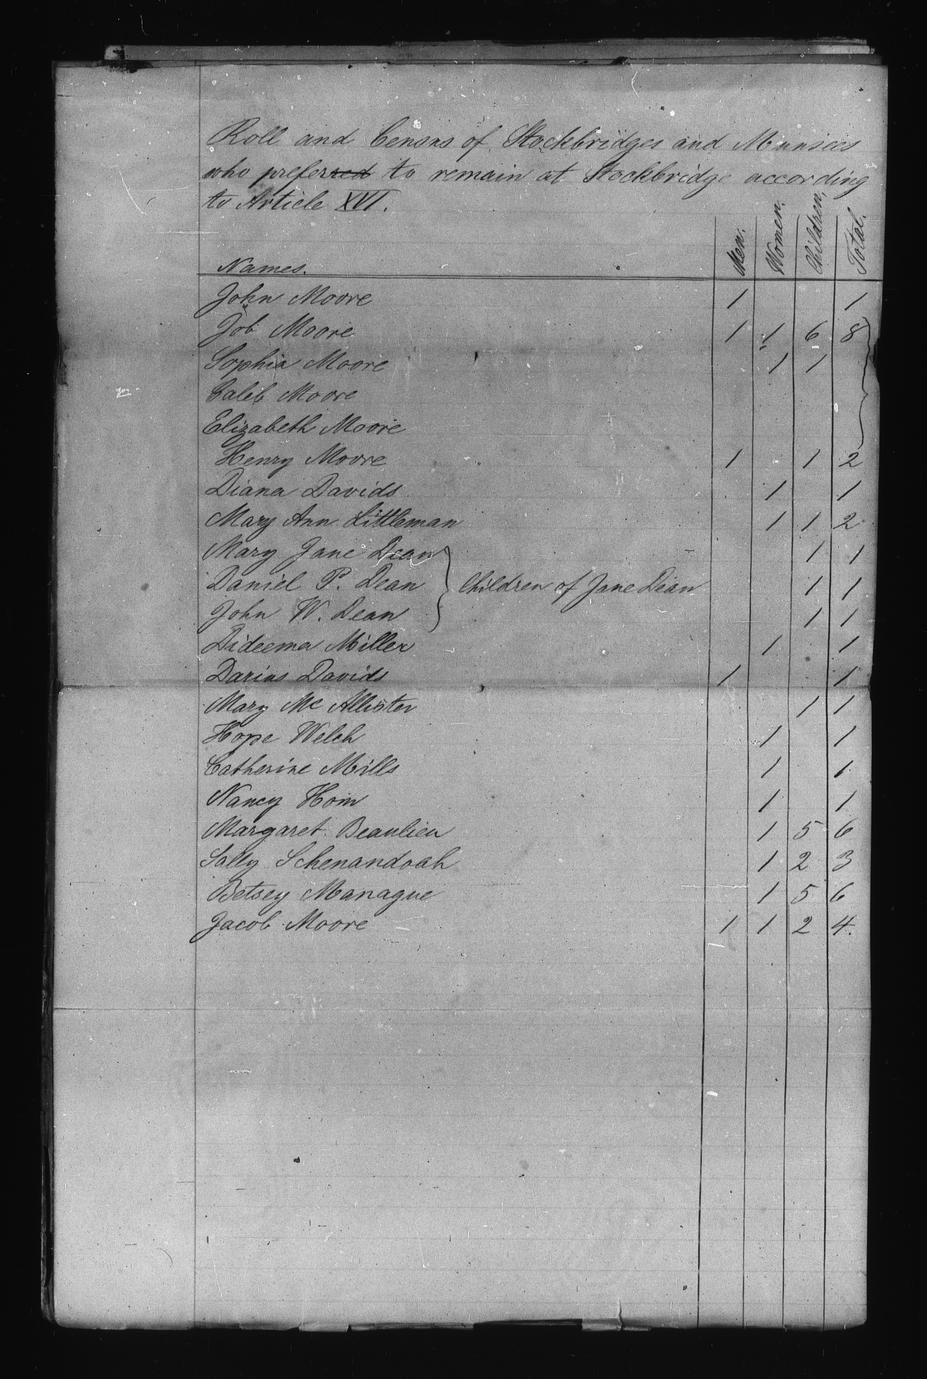 Roll and Census of Stockbridges and Munsees
who preferred to remain at Stockbridge according
to Article XVI.
Names. Men. Women. Children. Total.
John Moore 1 1
Job Moore 1 1 6 8
Sophia Moore 1 1
Caleb Moore
Elizabeth Moore
Henry Moore 1 1 2
Diana Davids 1 1
Mary Ann Littleman 1 1 2
Mary Jane Dean 1 1
Daniel P. Dean Children of Jane Dean 1 1
John W. Dean 1 1
Dideema Miller 1 1
Darius Davids 1 1
Mary Mc Allister 1 1
Hope Welch 1 1
Catherine Mills 1 1
Nancy Hom 1 1
Margaret Beaulieu 1 5 6
Sally Schenandoah 1 2 3
Betsey Manague 1 5 6
Jacob Moore 1 1 2 4.